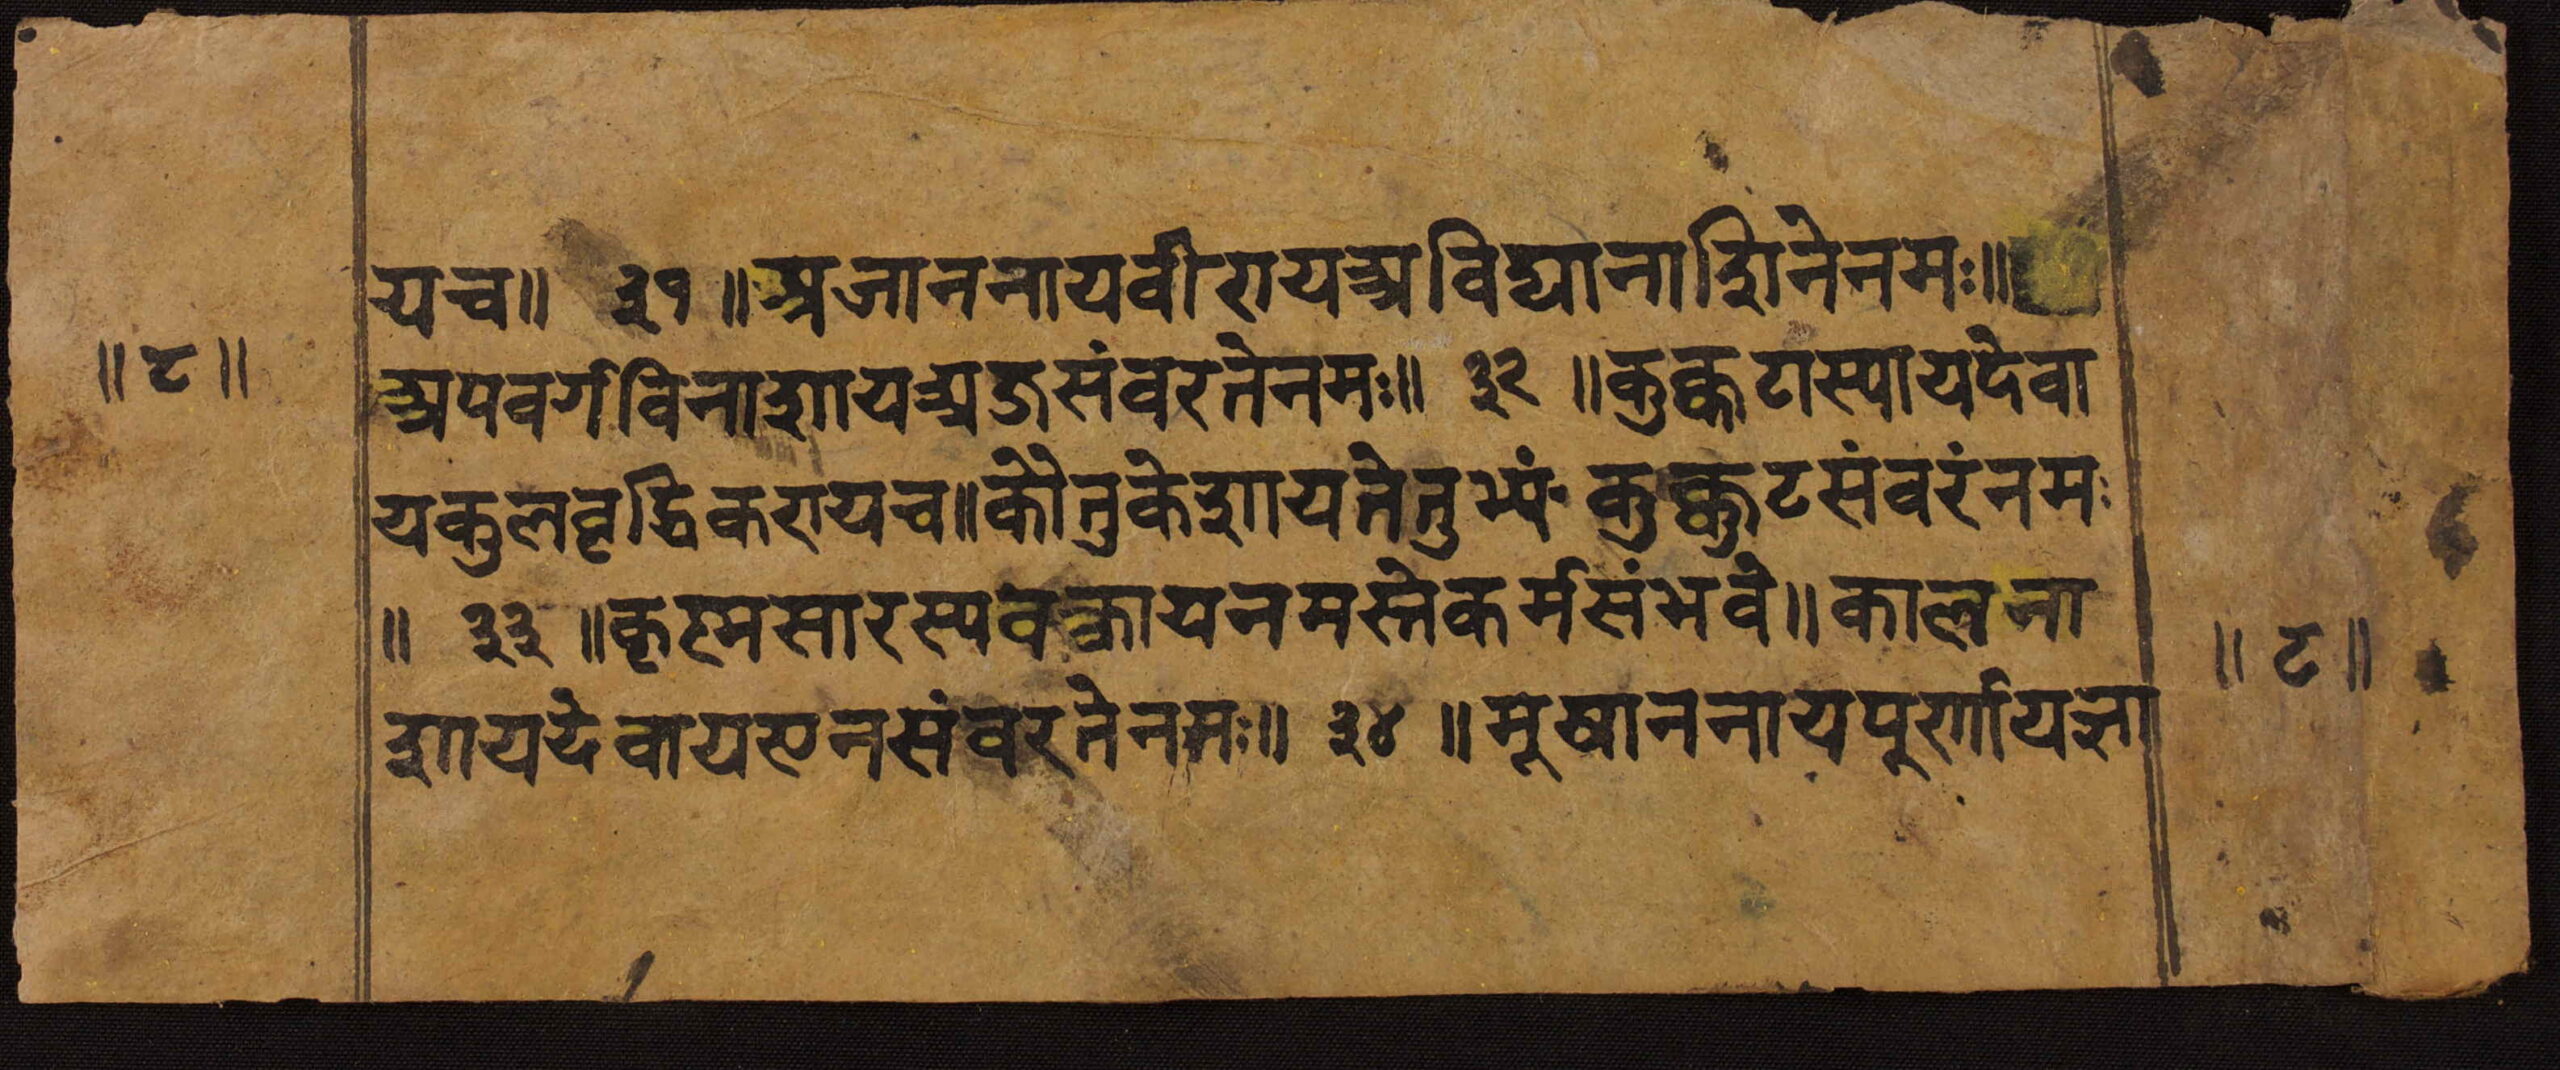 यच॥ ३१ ॥अजाननायवीरायअविद्यानाशिनेनमः॥
॥ ८ ॥
अपवर्गविनाशायअजसंवरतेनमः॥ ३२ ॥कुक्कुटास्यायदेवा
यकुलवृद्धिकरायच॥कौतुकेशायतेतुभ्यं कुक्कुटसंवरंनमः
॥ ३३ ॥कृष्मसारस्यवक्त्रायनमस्तेकर्मसंभवे॥कालना
॥ ८ ॥
शायदेवायएनसंवरतेनमः॥ ३४ ॥मूषाननायपुर्णायज्ञा